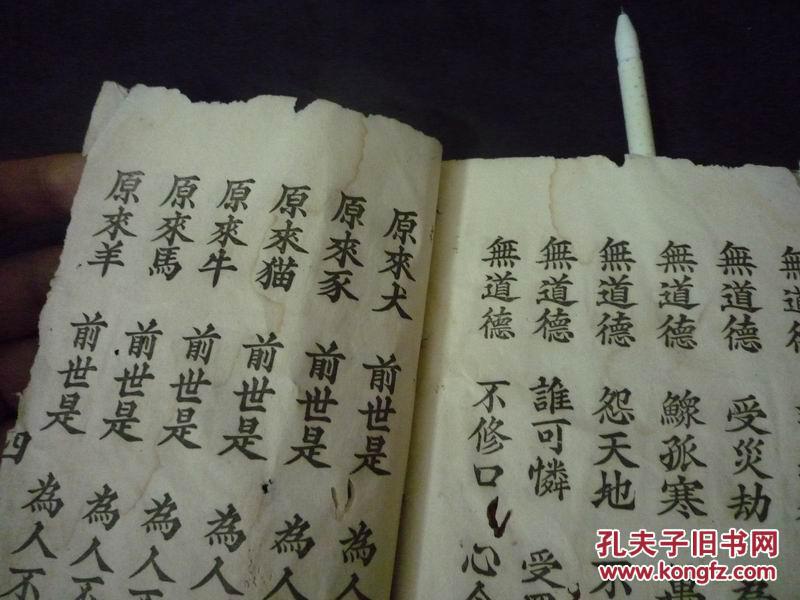 無道德
無道德 受災劫 為
無道德 鰥孤寒
無道德 怨天地 不
無道德 誰可憐 受
無道德 不修口 心
原來犬 前世是 為人
原來豕 前世是 為人
原來猫 前世是 為人
原來牛 前世是 為人不
原來馬 前世是 為人不
原來羊 前世是 為人不
四
孔夫子旧书网
www.kongfz.com